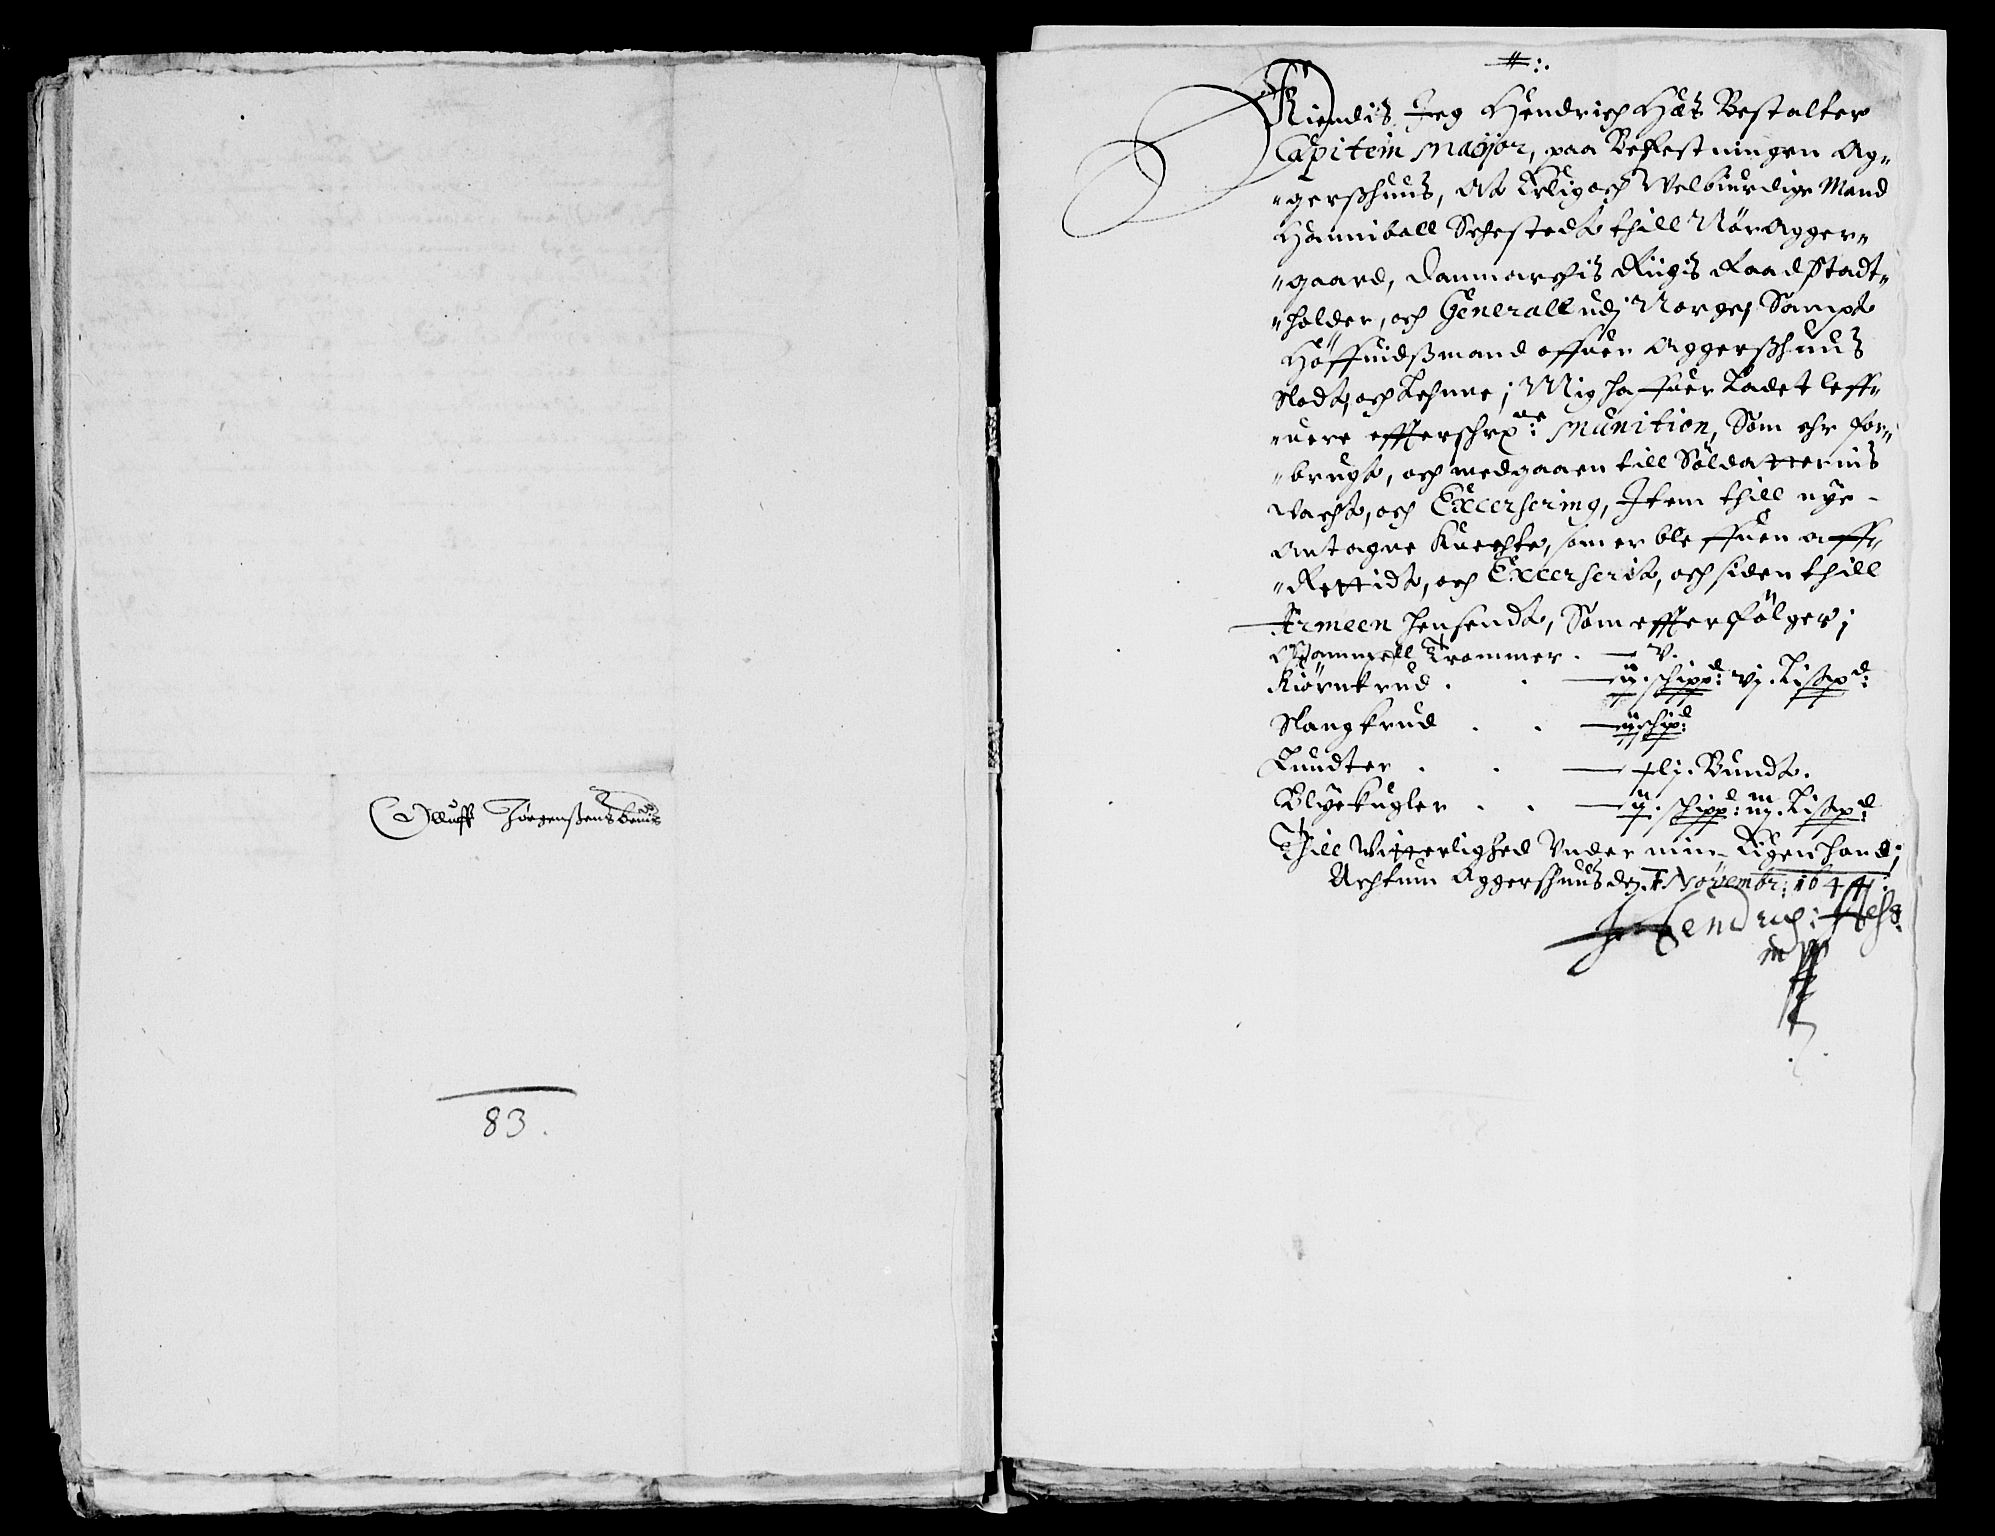 Olluff Jörgenßens beuiis
83.
Kiendis Jeg Hendrich Hæs Bestalter
Capitein Maÿor, paa Befestningen Ag„
„gerßhuus, At Erlig och Welbiurdige Mand
Hanniball Sehestedt thill Nör Agger„
„gaard, Danmarchis Riigis Raad Stadt„
„holder, och Generall udj Norge, Sampt
Höffuidßmand offuer Aggerßhuus
Slodt, och Lehnne; Mig haffuer Ladet leff„
„uere effterschrͤne: Munition, Som ehr for„
„brugt, och medgaaen till Söldatternis
Wacht, och Excersering, Item thill nye
Antagne Knechte, som er bleffuen aff„
„Rettidt, och Excersert, och siden thill
Armeen hensendt, Som effterfölger;
Trommer. — V.
Kiörnkrud . . — ij. schippd: vj. Lißpd:
Slangkrud . . — ij schipd:
Lundter . . — xlj. Bundt.
Blyekugler . . — ij. schippd: iij. Lißpd:
Thill Witterlighed Under min Eigen hand;
Actum Aggershuus dj. 1 Novembr: 1644:
Hendrich: Hess
mpp